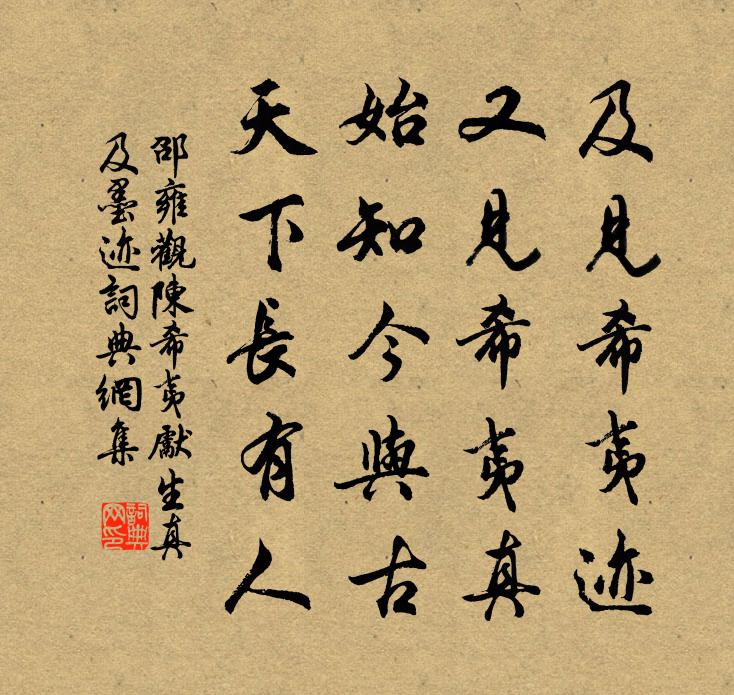 及見希夷迹
又見希夷真
始知今與古
天下長有人
邵雍觀陳希夷獻生真
及墨迹詞典網集
詞典网印